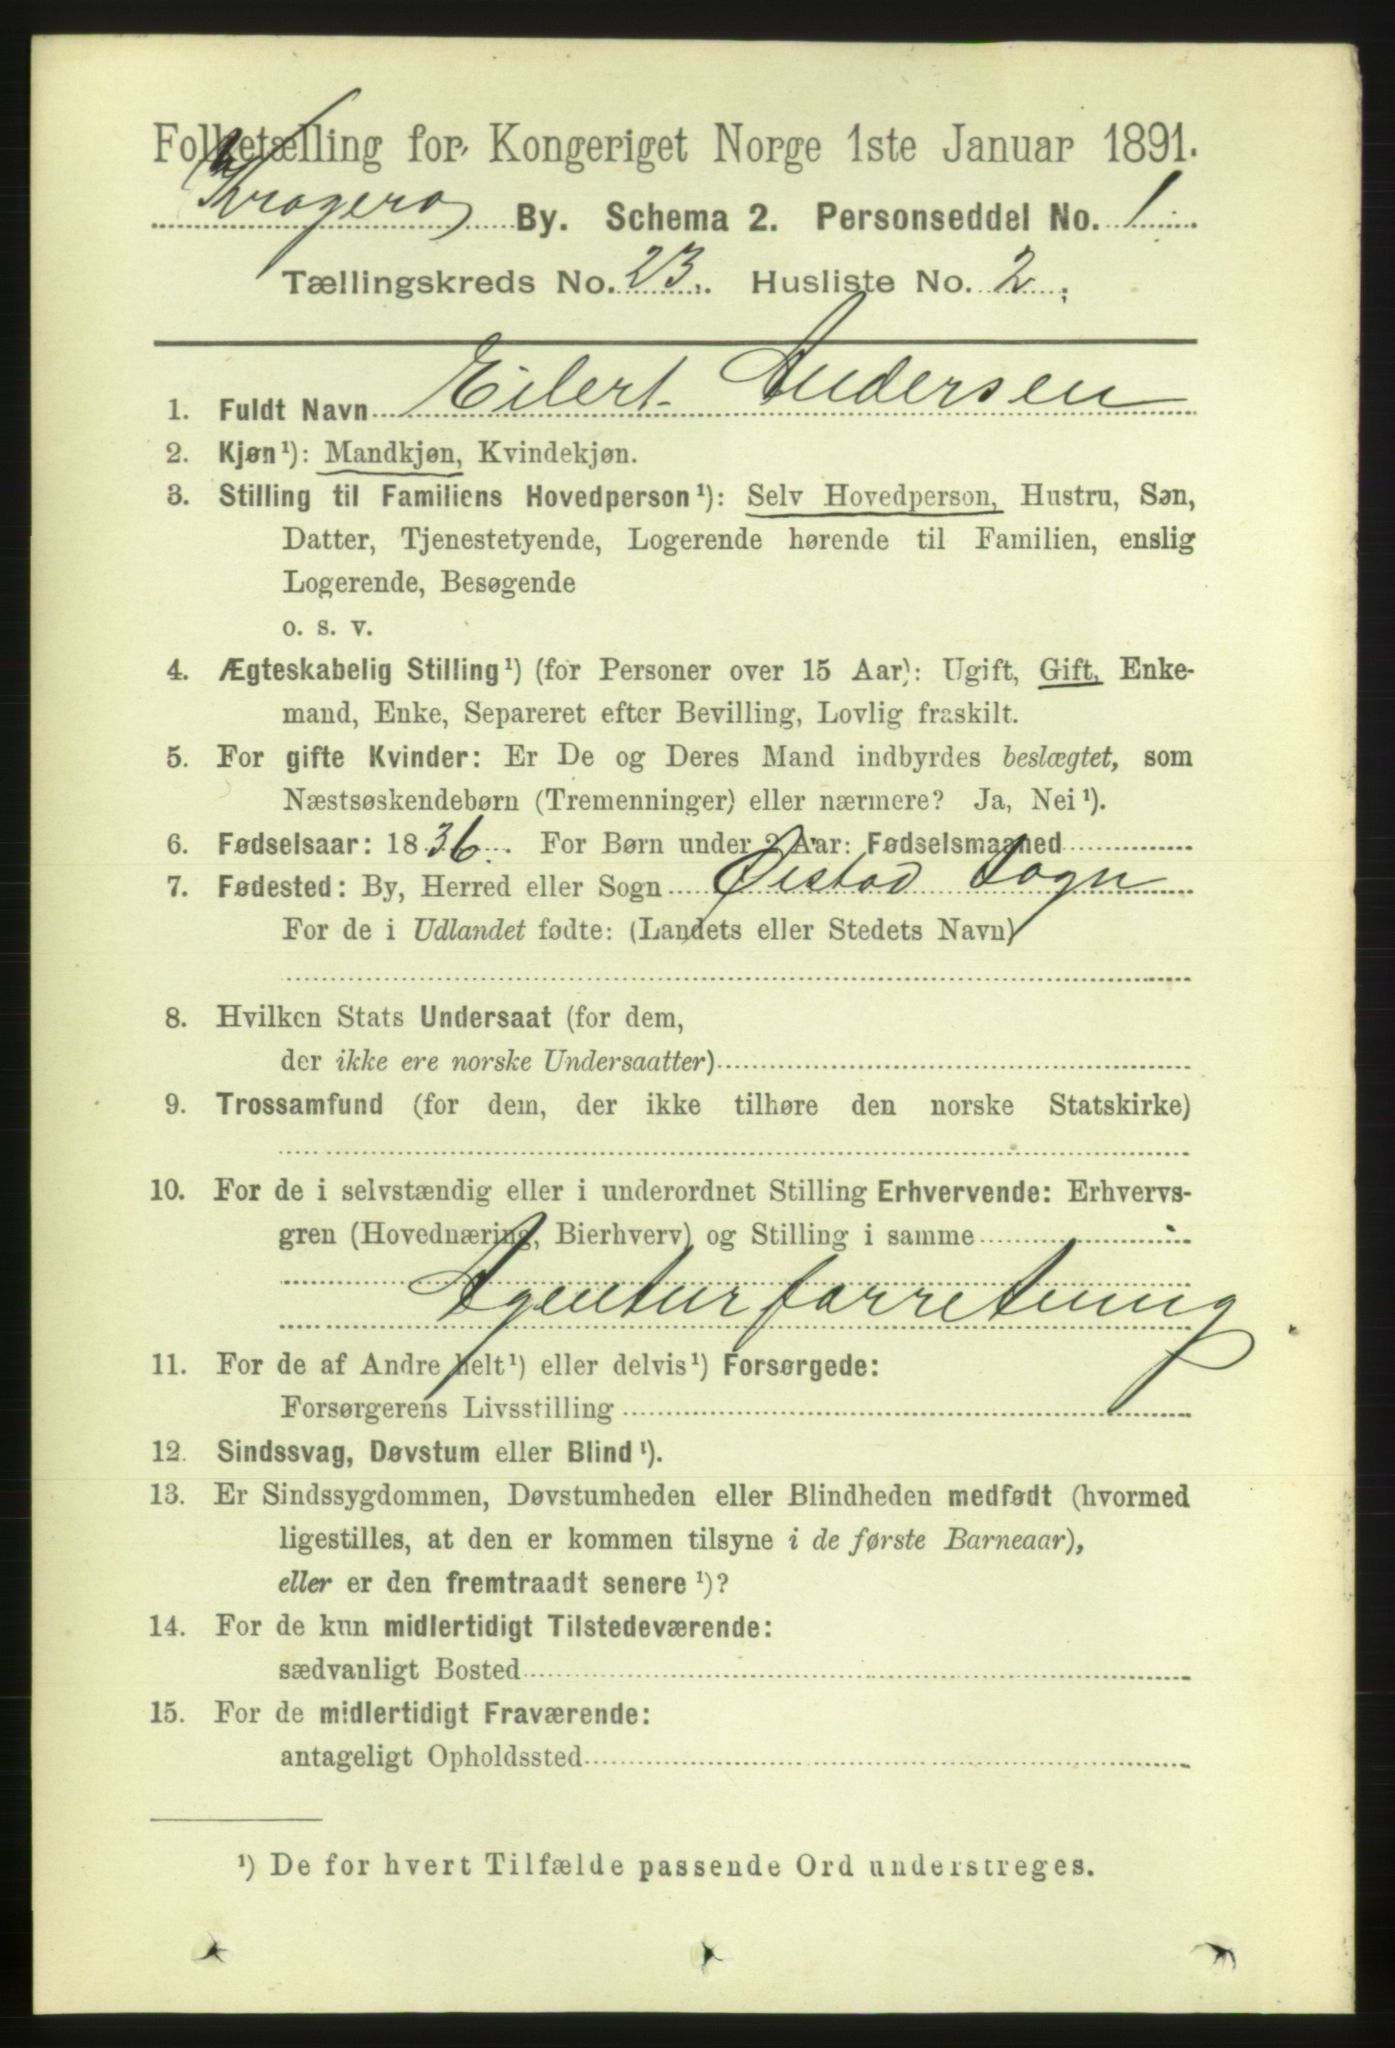 Folketælling for Kongeriget Norge 1ste Januar 1891.
Kragerø By. Schema 2. Personseddel No. 1
Tællingskreds No. 23. Husliste No. 2.
1. Fuldt Navn Eilert Andersen
2. Kjøn¹): Mandkjøn, Kvindekjøn.
3. Stilling til Familiens Hovedperson¹): Selv Hovedperson, Hustru, Søn,
Datter, Tjenestetyende, Logerende hørende til Familien, enslig
Logerende, Besøgende
o. s. v.
4. Ægteskabelig Stilling¹) (for Personer over 15 Aar): Ugift, Gift, Enke-
mand, Enke, Separeret efter Bevilling, Lovlig fraskilt.
5. For gifte Kvinder: Er De og Deres Mand indbyrdes beslægtet, som
Næstsøskendebørn (Tremenninger) eller nærmere? Ja, Nei¹).
6. Fødselsaar: 1836. For Børn under 2 Aar: Fødselsmaaned
7. Fødested: By, Herred eller Sogn Øistad Sogn
For de i Udlandet fødte: (Landets eller Stedets Navn)
8. Hvilken Stats Undersaat (for dem,
der ikke ere norske Undersaatter)
9. Trossamfund (for dem, der ikke tilhøre den norske Statskirke)
10. For de i selvstændig eller i underordnet Stilling Erhvervende: Erhvervs-
gren (Hovednæring, Bierhverv) og Stilling i samme
Agenturforretning
11. For de af Andre helt¹) eller delvis¹) Forsørgede:
Forsørgerens Livsstilling
12. Sindssvag, Døvstum eller Blind¹).
13. Er Sindssygdommen, Døvstumheden eller Blindheden medfødt (hvormed
ligestilles, at den er kommen tilsyne i de første Barneaar),
eller er den fremtraadt senere¹)?
14. For de kun midlertidigt Tilstedeværende:
sædvanligt Bosted
15. For de midlertidigt Fraværende:
antageligt Opholdssted
¹) De for hvert Tilfælde passende Ord understreges.